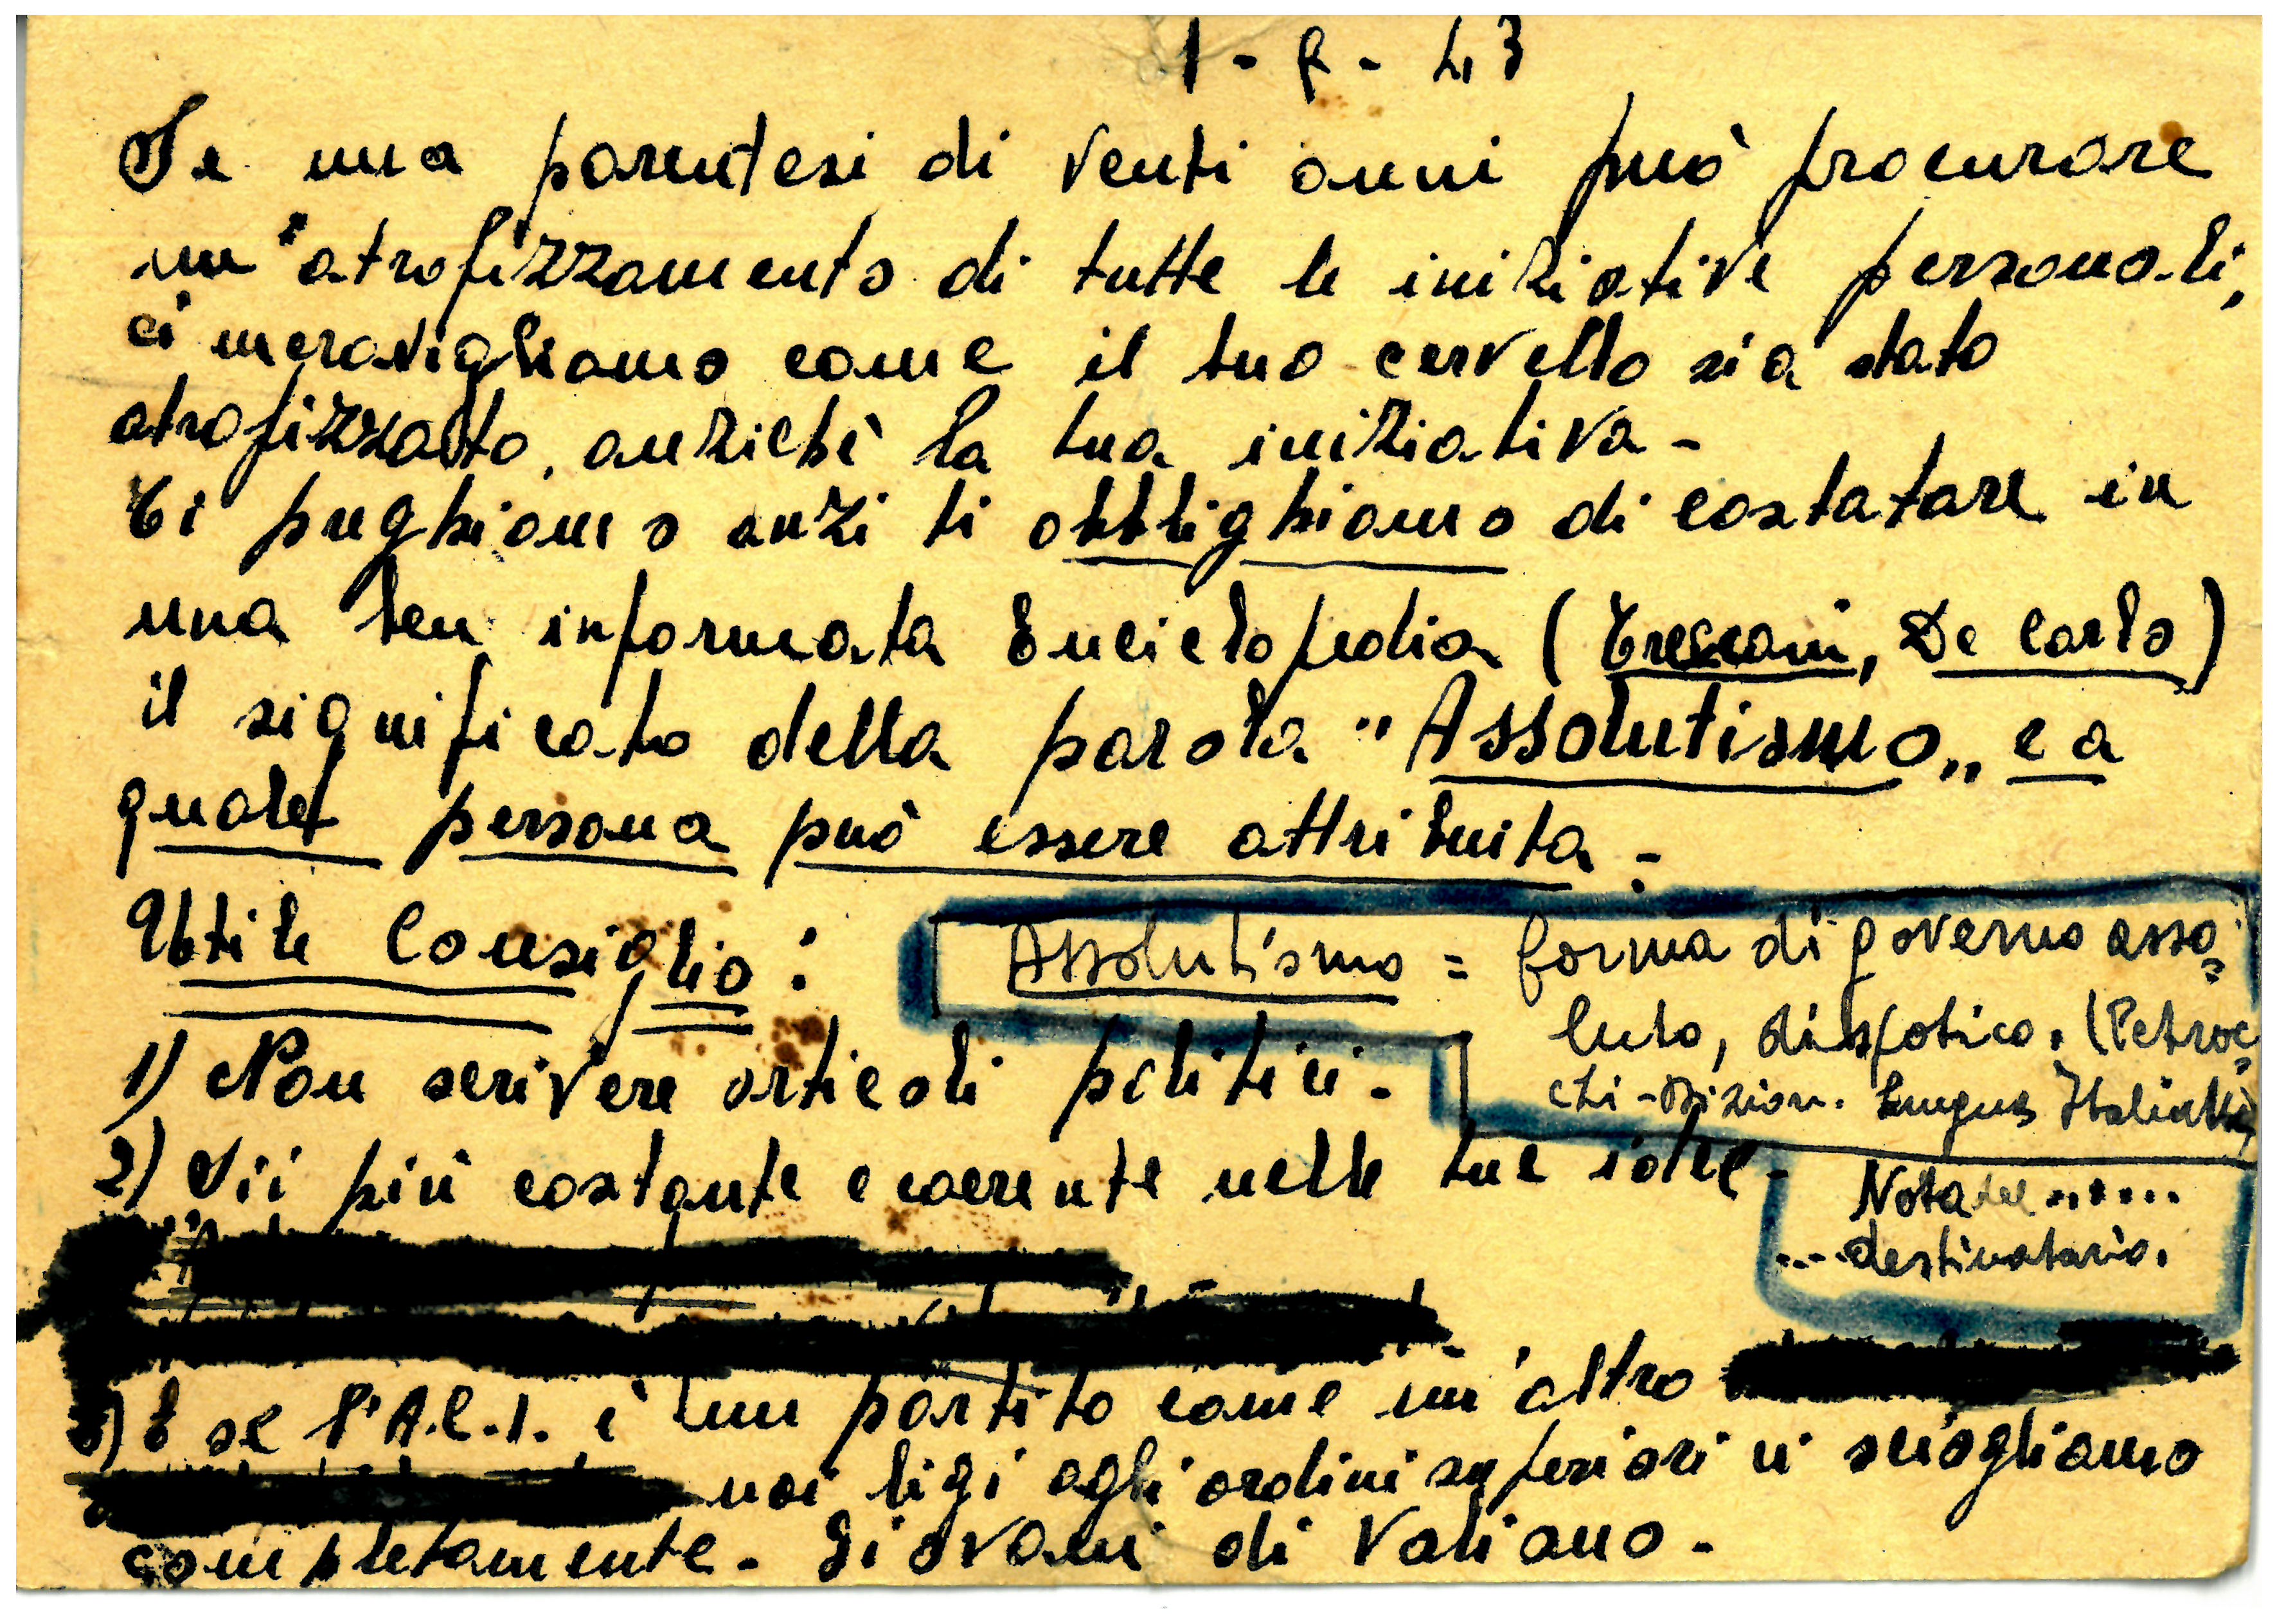 1 - 8 - 43
Se una parentesi di venti anni può procurare
un'atrofizzamento di tutte le iniziative personali,
ci meravigliamo come il tuo cervello sia stato
atrofizzato, anzichè la tua iniziativa -
Ti preghiamo anzi ti obblighiamo di costatare in
una ben informata Enciclopedia (Treccani, De Carlo)
il significato della parola "Assolutismo„ e a
quale persona può essere attribuita -
Utile Consiglio:
Assolutismo = forma di governo asso=
luto, dispotico. (Petroc=
chi - Dizion. Lingua
1) Non scrivere articoli politici -
2) Sii più costante e coerente nelle tue idee -
Nota del ......
... destinatario.
3) E se l'A.C.I. è un partito come un'altro
noi ligi agli ordini superiori ci sciogliamo
completamente - Giovani di Valiano -